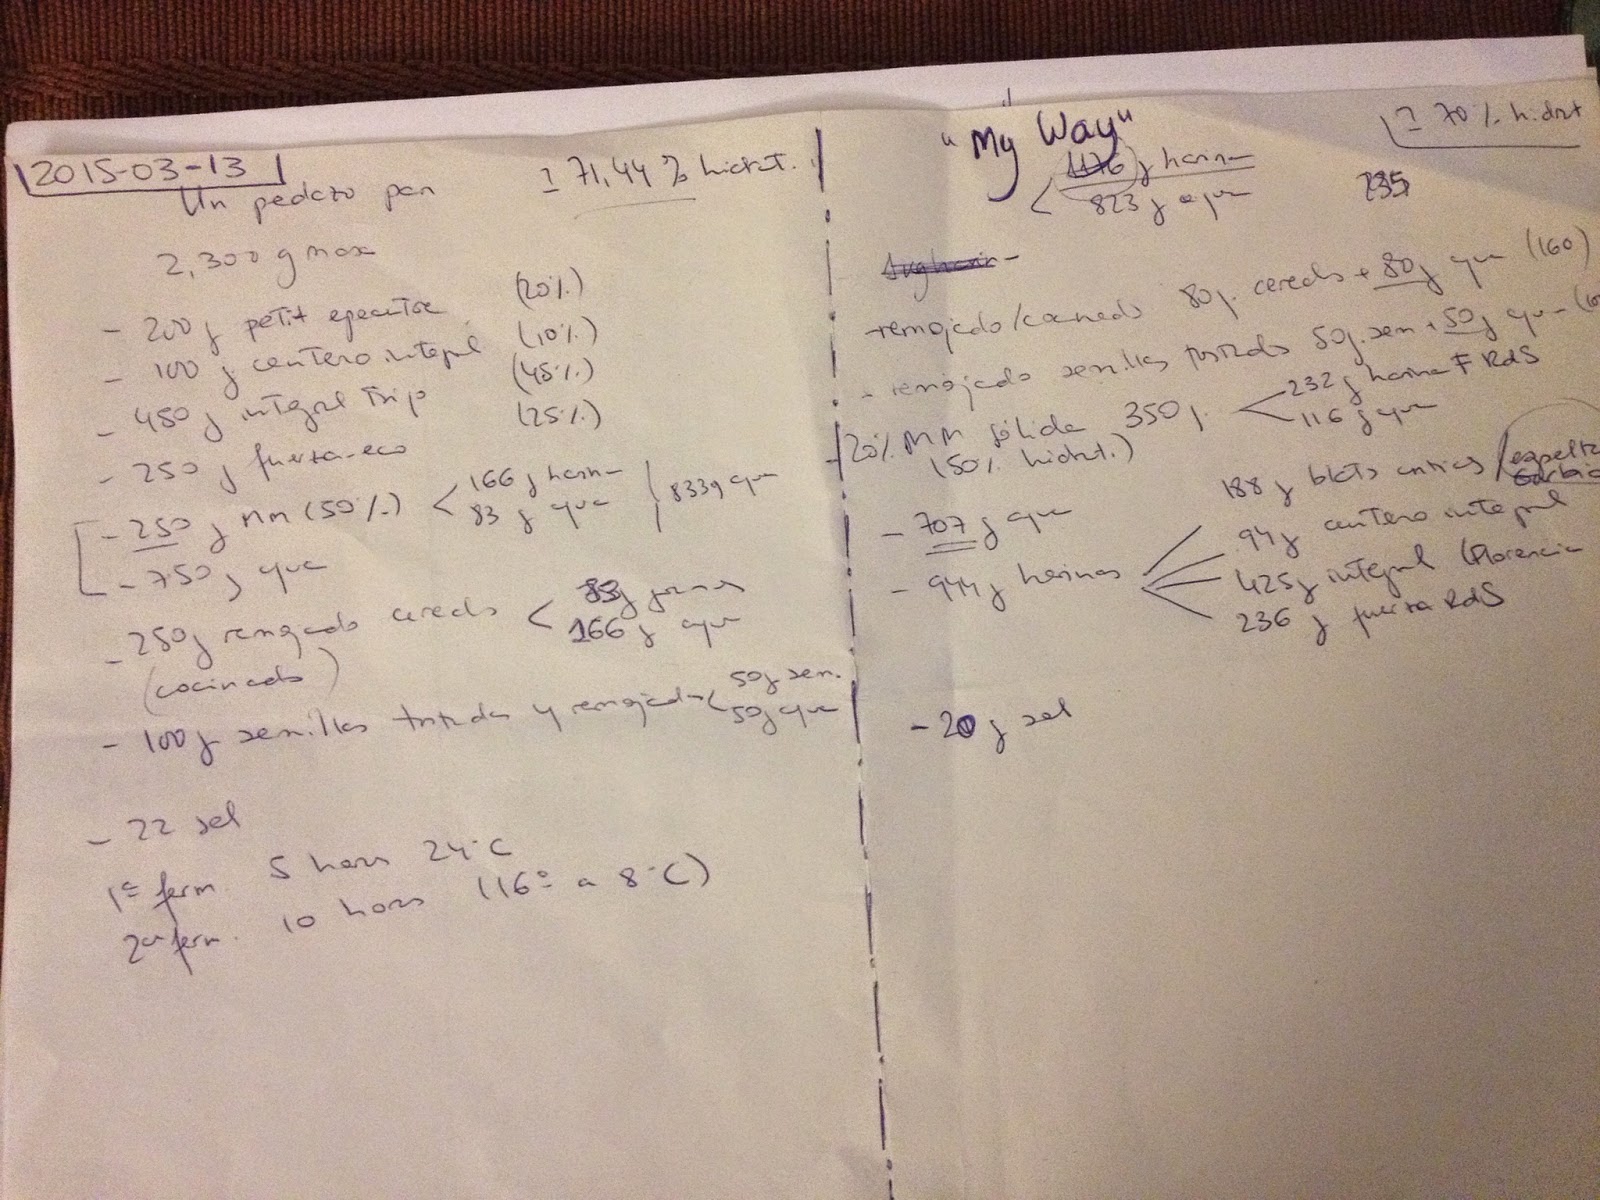 2015-03-13
± 71,44 % hidrat.
Un pedazo pan
2,300 g max
- 200 g petit epeautre (20%)
- 100 g centeno integral (10%)
- 450 g integral Trip (45%)
- 250 g fuerza-eco (25%)
- 250 g MM (50%) < 166 g harina
83 g agua
833g agua
- 750 g agua
- 250 g remojado cereals < 83 g
166 g agua
(cocinado)
- 100 g semillas tostadas y remojadas < 50g sem.
50g agua
- 22 sal
1ª ferm. 5 horas 24°C
2ª ferm. 10 horas (16° a 8°C)
"My Way"
± 70 % hidrat
1176 g harina
< 823 g agua
235
- remojado/cocinado 80g. cereals + 80g agua (160)
- remojado semillas tostadas 50g. sem + 50g agua
- 20% MM sólida 350g. < 232 g harina F RdS
116 g agua
(50% hidrat.)
- 707 g agua
- 944 g harinas
188 g blats antics / espelta
94 g centeno integral
425g integral (Florencia
236 g fuerza RdS
- 20 g sal